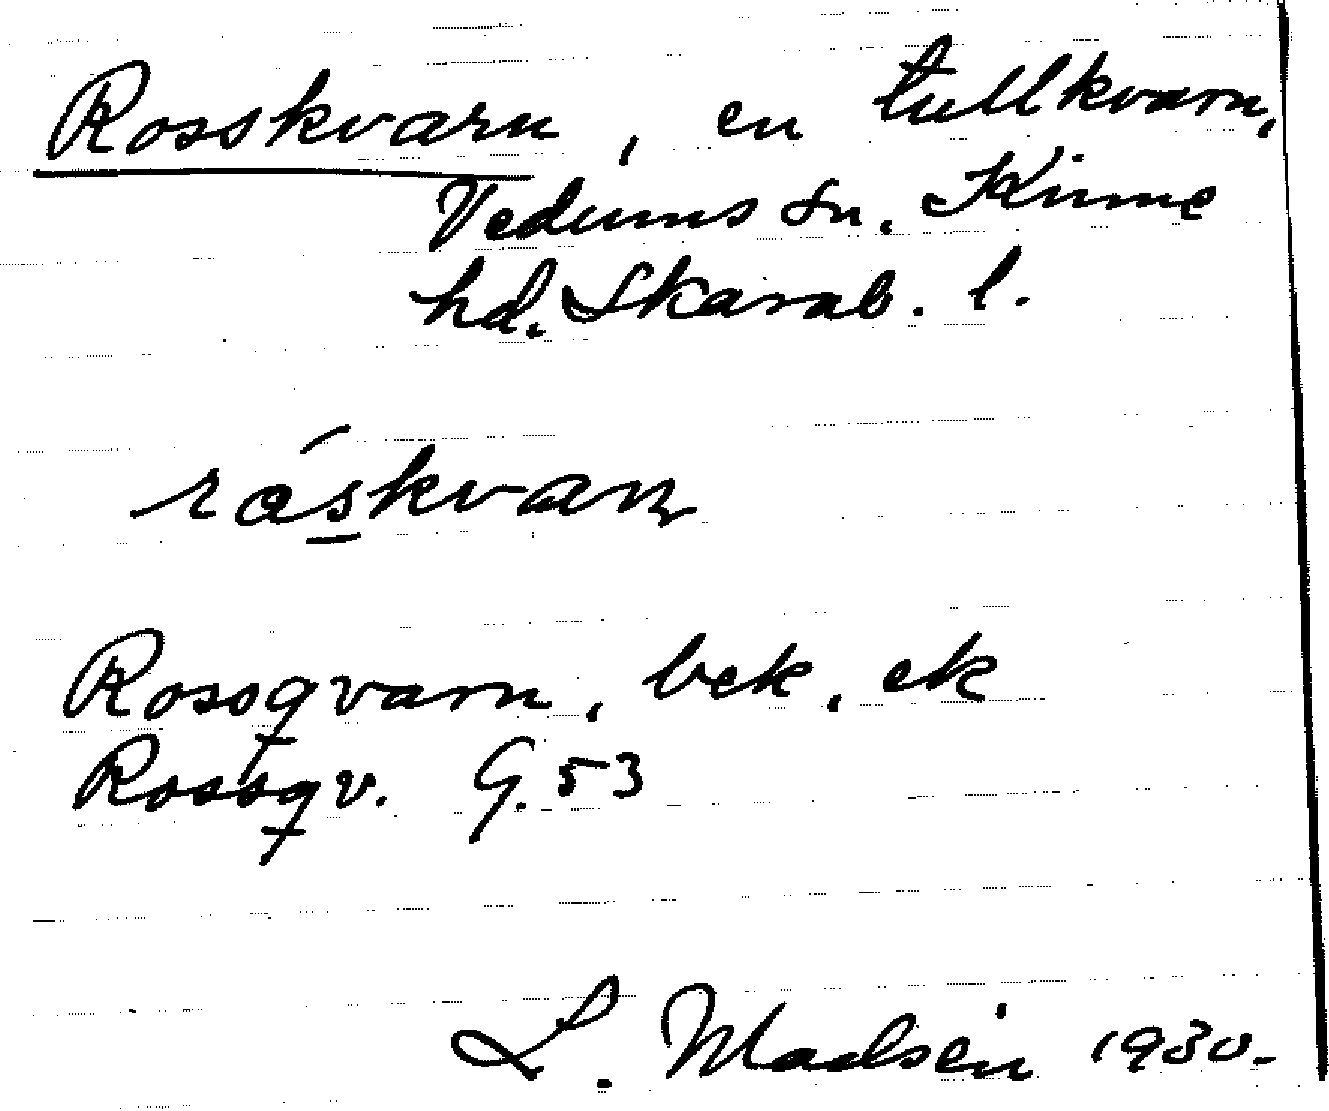 Rosskvarn, en tullkvarn,
Vedums sn. Kinne
hd. Skarab. l.
råskvarn
Rossqvarn, bek. ek
Rossqv. G. 53
L. Madsén 1930.